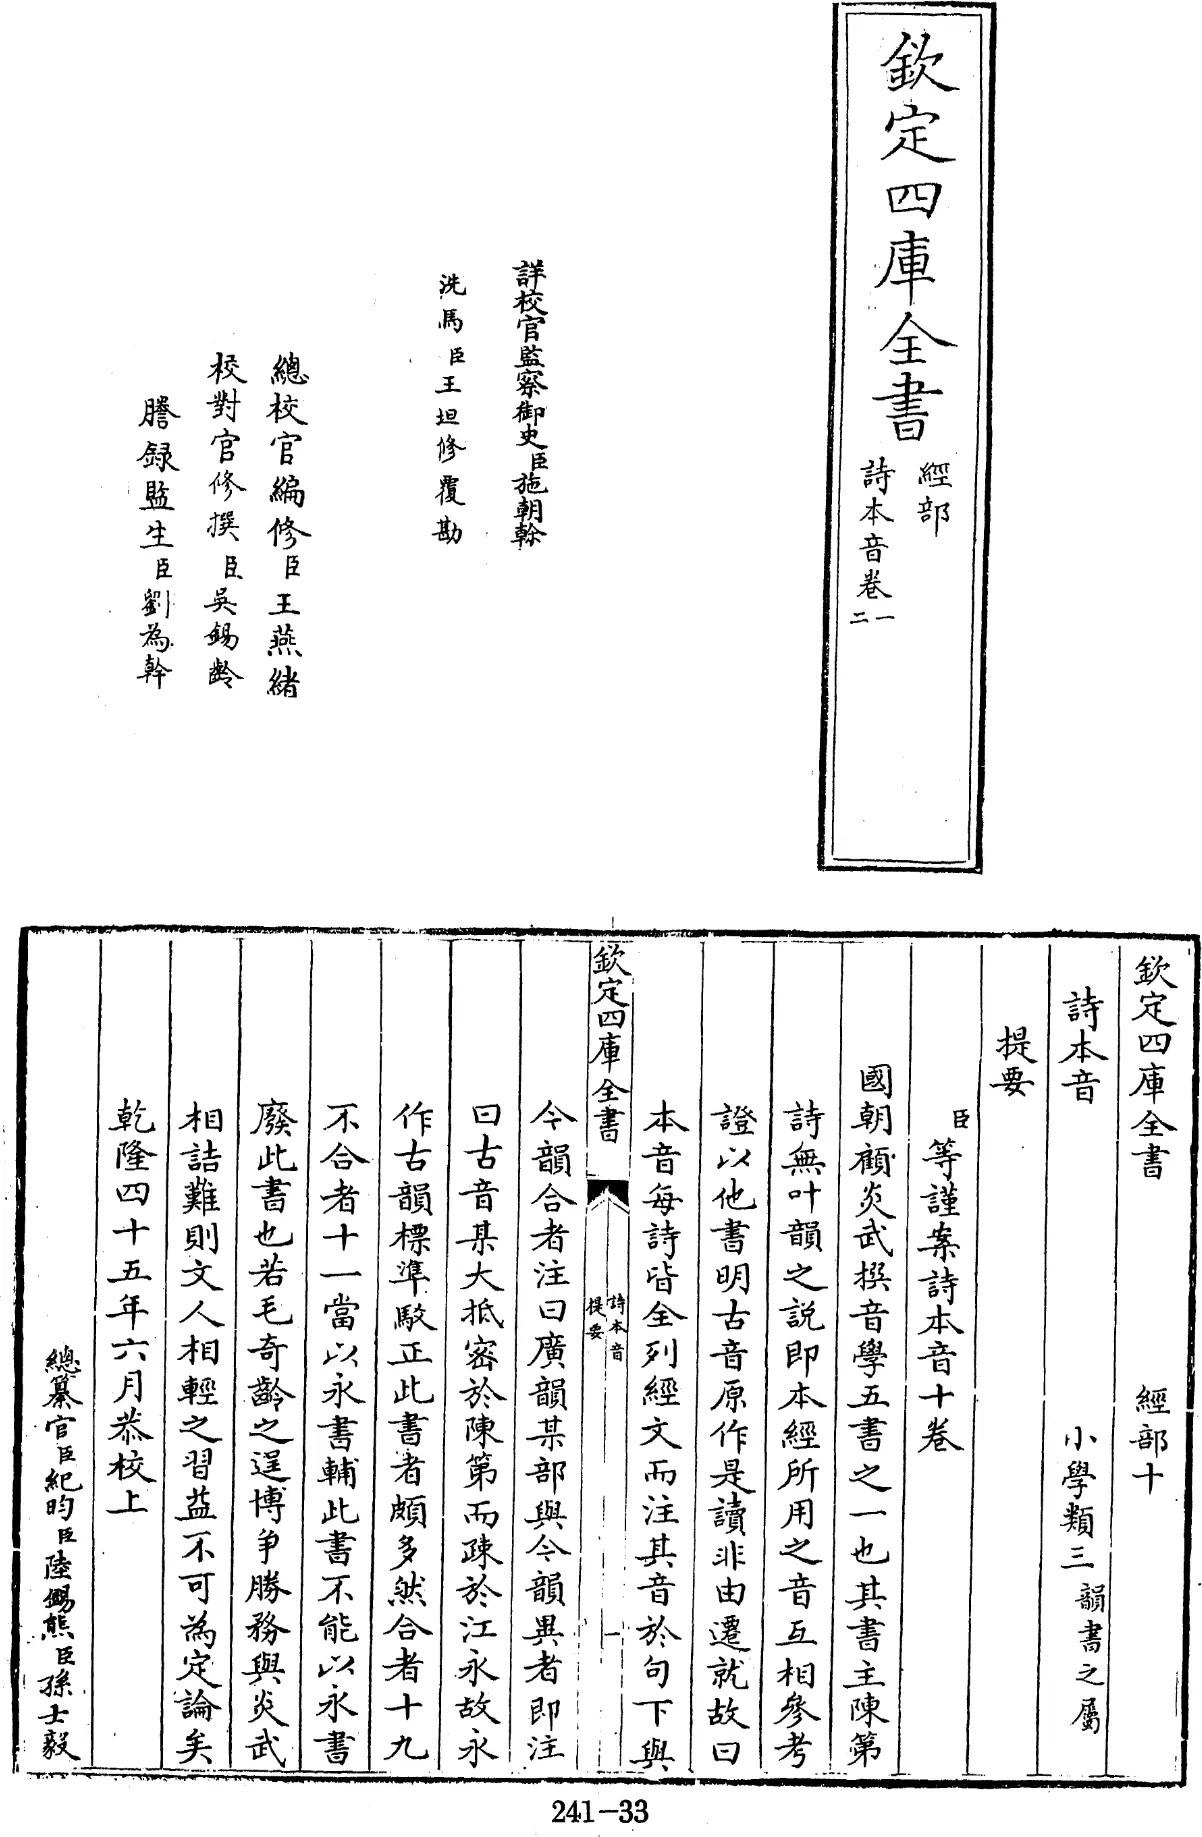 欽定四庫全書
經部
詩本音卷一
二
詳校官監察御史臣施朝幹
洗馬臣王坦修覆勘
總校官編修臣王燕緒
校對官修撰臣吳錫齡
謄錄監生臣劉為幹
欽定四庫全書 經部十
詩本音 小學類三 韻書之屬
提要
臣等謹案詩本音十卷
國朝顧炎武撰音學五書之一也其書主陳第
詩無叶韻之說即本經所用之音互相參考
證以他書明古音原作是讀非由遷就故曰
本音每詩皆全列經文而注其音於句下與
欽定四庫全書
詩本音
提要
一
今韻合者注曰廣韻某部與今韻異者即注
曰古音某大抵密於陳第而疎於江永故永
作古韻標準駁正此書者頗多然合者十九
不合者十一當以永書輔此書不能以永書
廢此書也若毛奇齡之逞博爭勝務與炎武
相詰難則文人相輕之習益不可為定論矣
乾隆四十五年六月恭校上
總纂官臣紀昀臣陸錫熊臣孫士毅
241-33